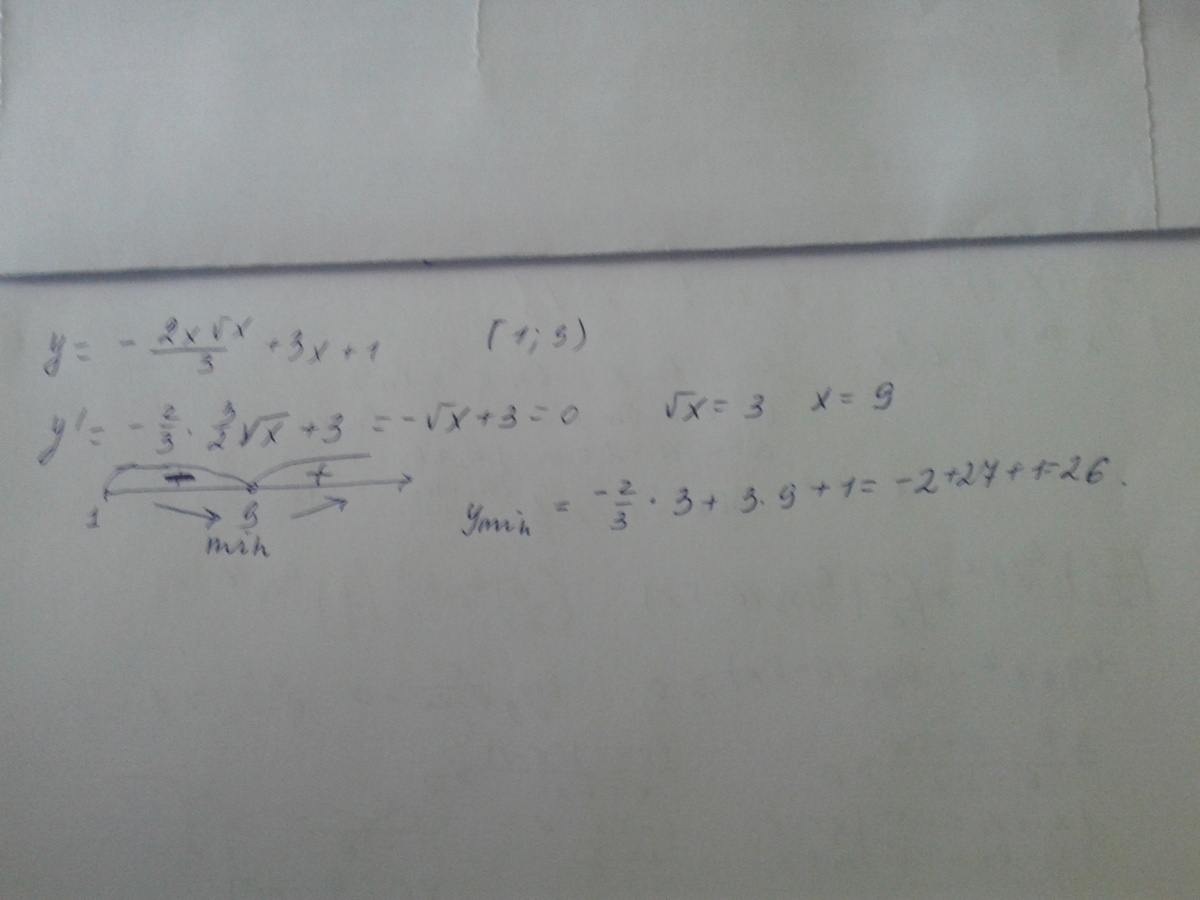 y = - 2x√x/3 + 3x + 1 [1; 9)
y' = - 2/3 · 3/2 √x + 3 = - √x + 3 = 0 √x = 3 x = 9
- +
1 9
min
y min = - 2/3 · 3 + 3 · 9 + 1 = - 2 + 27 + 1 = 26.